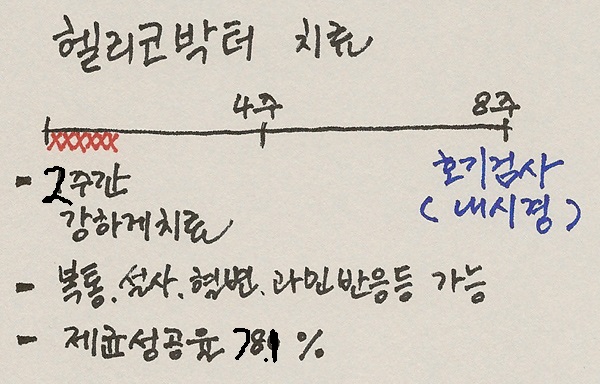 헬리코박터 치료
4주 8주
- 2주간
강하게치료
호기검사
(내시경)
- 복통.설사.혈변.과민반응등 가능
- 제균성공율 78.1 %